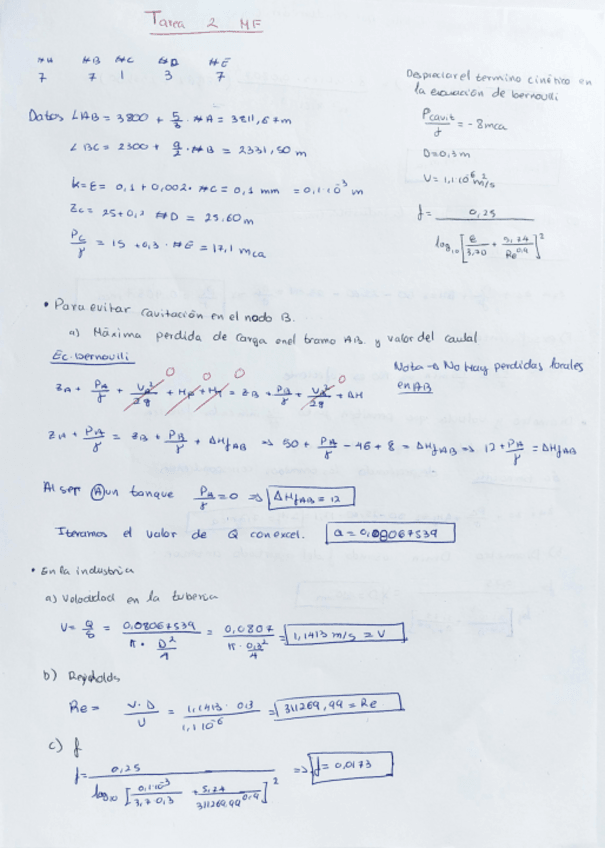 Tarea 2 MF
#A #B #C #D #E
7 7 1 3 7
Despreciar el termino cinético en
la ecuación de bernoulli
Datos LAB = 3800 + 5/3 · #A = 3811,67m
Pcavit/γ = -8mca
L BC = 2300 + 9/2 · #B = 2331,50 m
D=0,3m
k=ε= 0,1 + 0,002 · #C = 0,1 mm = 0,1·10^-3 m
υ= 1,1·10^-6 m²/s
Zc = 25+0,2 #D = 25.60m
f = 0,25 / log10 [ε/3,70 + 5,74/Re^0,9]²
Pc/γ = 15 + 0,3 · #E = 17,1 mca
• Para evitar cavitación en el nodo B.
a) Máxima perdida de carga en el tramo AB. y valor del caudal
Ec. bernoulli
Nota → No hay perdidas locales
en AB
ZA + PA/γ + VA²/2g + + = ZB + PB/γ + VB²/2g + ΔH
0 0 0 0
ZA + PA/γ = ZB + PB/γ + ΔHfAB ⇒ 50 + PA/γ - 46 + 8 = ΔHfAB ⇒ 12 + PA/γ = ΔHfAB
Al ser A un tanque PA/γ = 0 ⇒ ΔHfAB = 12
Iteramos el valor de Q con excel. Q = 0,08067539
• En la industria
a) Velocidad en la tuberia
V= Q/S = 0,08067539 / π · D²/4 = 0,0807 / π · 0,3²/4 = 1,1413 m/s = V
b) Reynolds
Re = V · D / υ = 1,1413 · 0,3 / 1,1·10^-6 = 311269,99 = Re
c) f
f = 0,25 / log10 [0,1·10^-3 / 3,7·0,3 + 5,74 / 311269,99^0,9]² ⇒ f = 0,0173